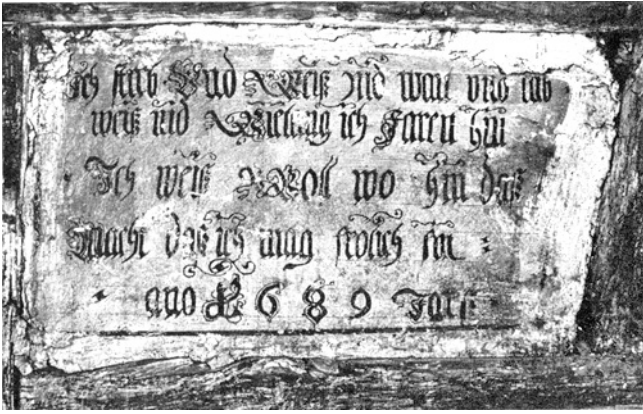 Ich stirb Vnd Weiß nid wan vnd
weiß nid Wielang ich Faren hin
Ich weiß Woll wo hin daß
Macht daß ich mag frölich sin
ano 1689 Jarß